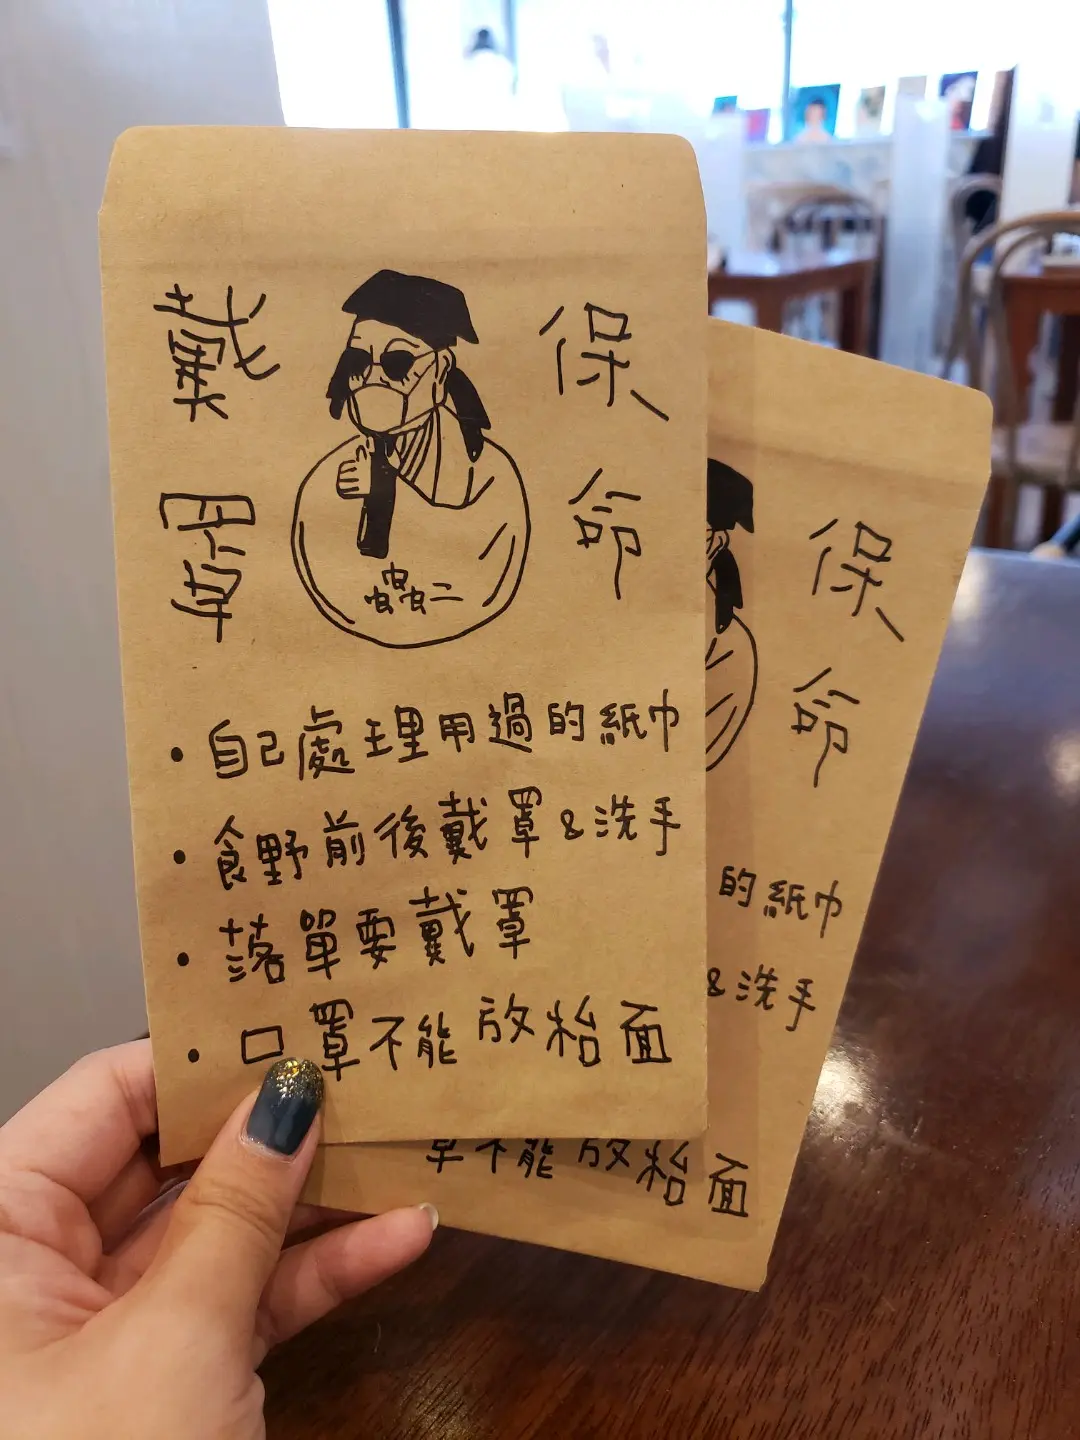 戴罩
保命
蟲二
• 自己處理用過的紙巾
• 食野前後戴罩&洗手
• 落單要戴罩
• 口罩不能放枱面
保命
的紙巾
&洗手
罩不能放枱面